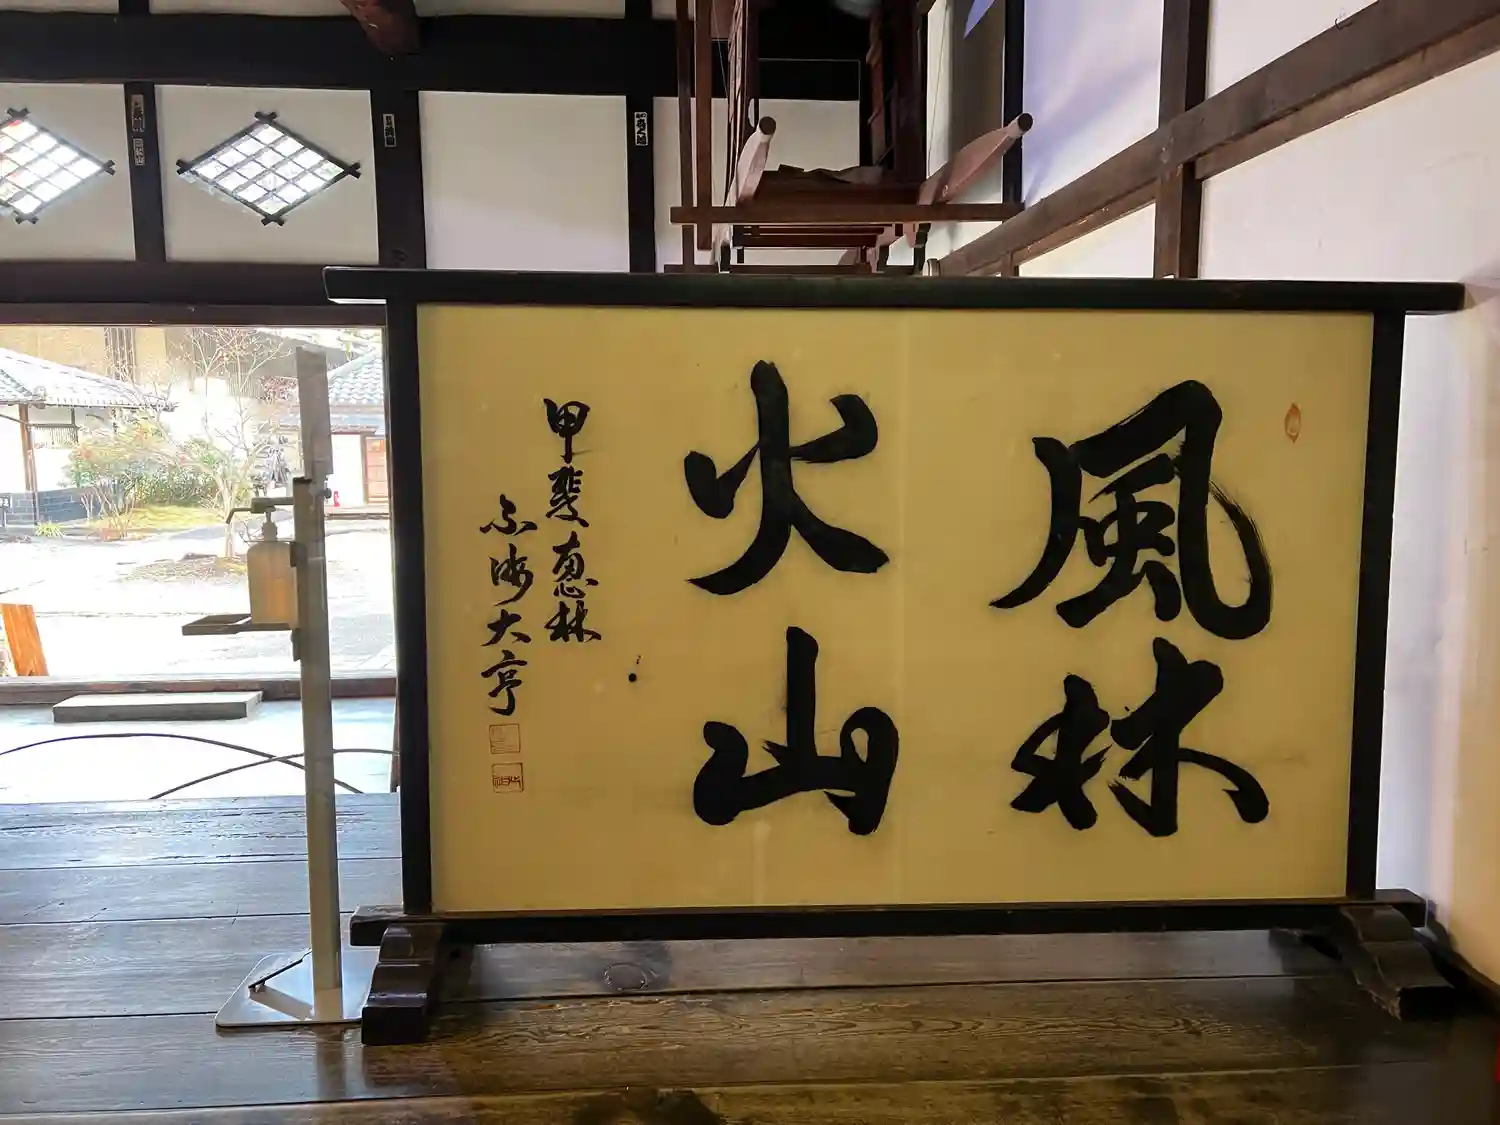 風林
火山
甲斐恵林
不渉大亨